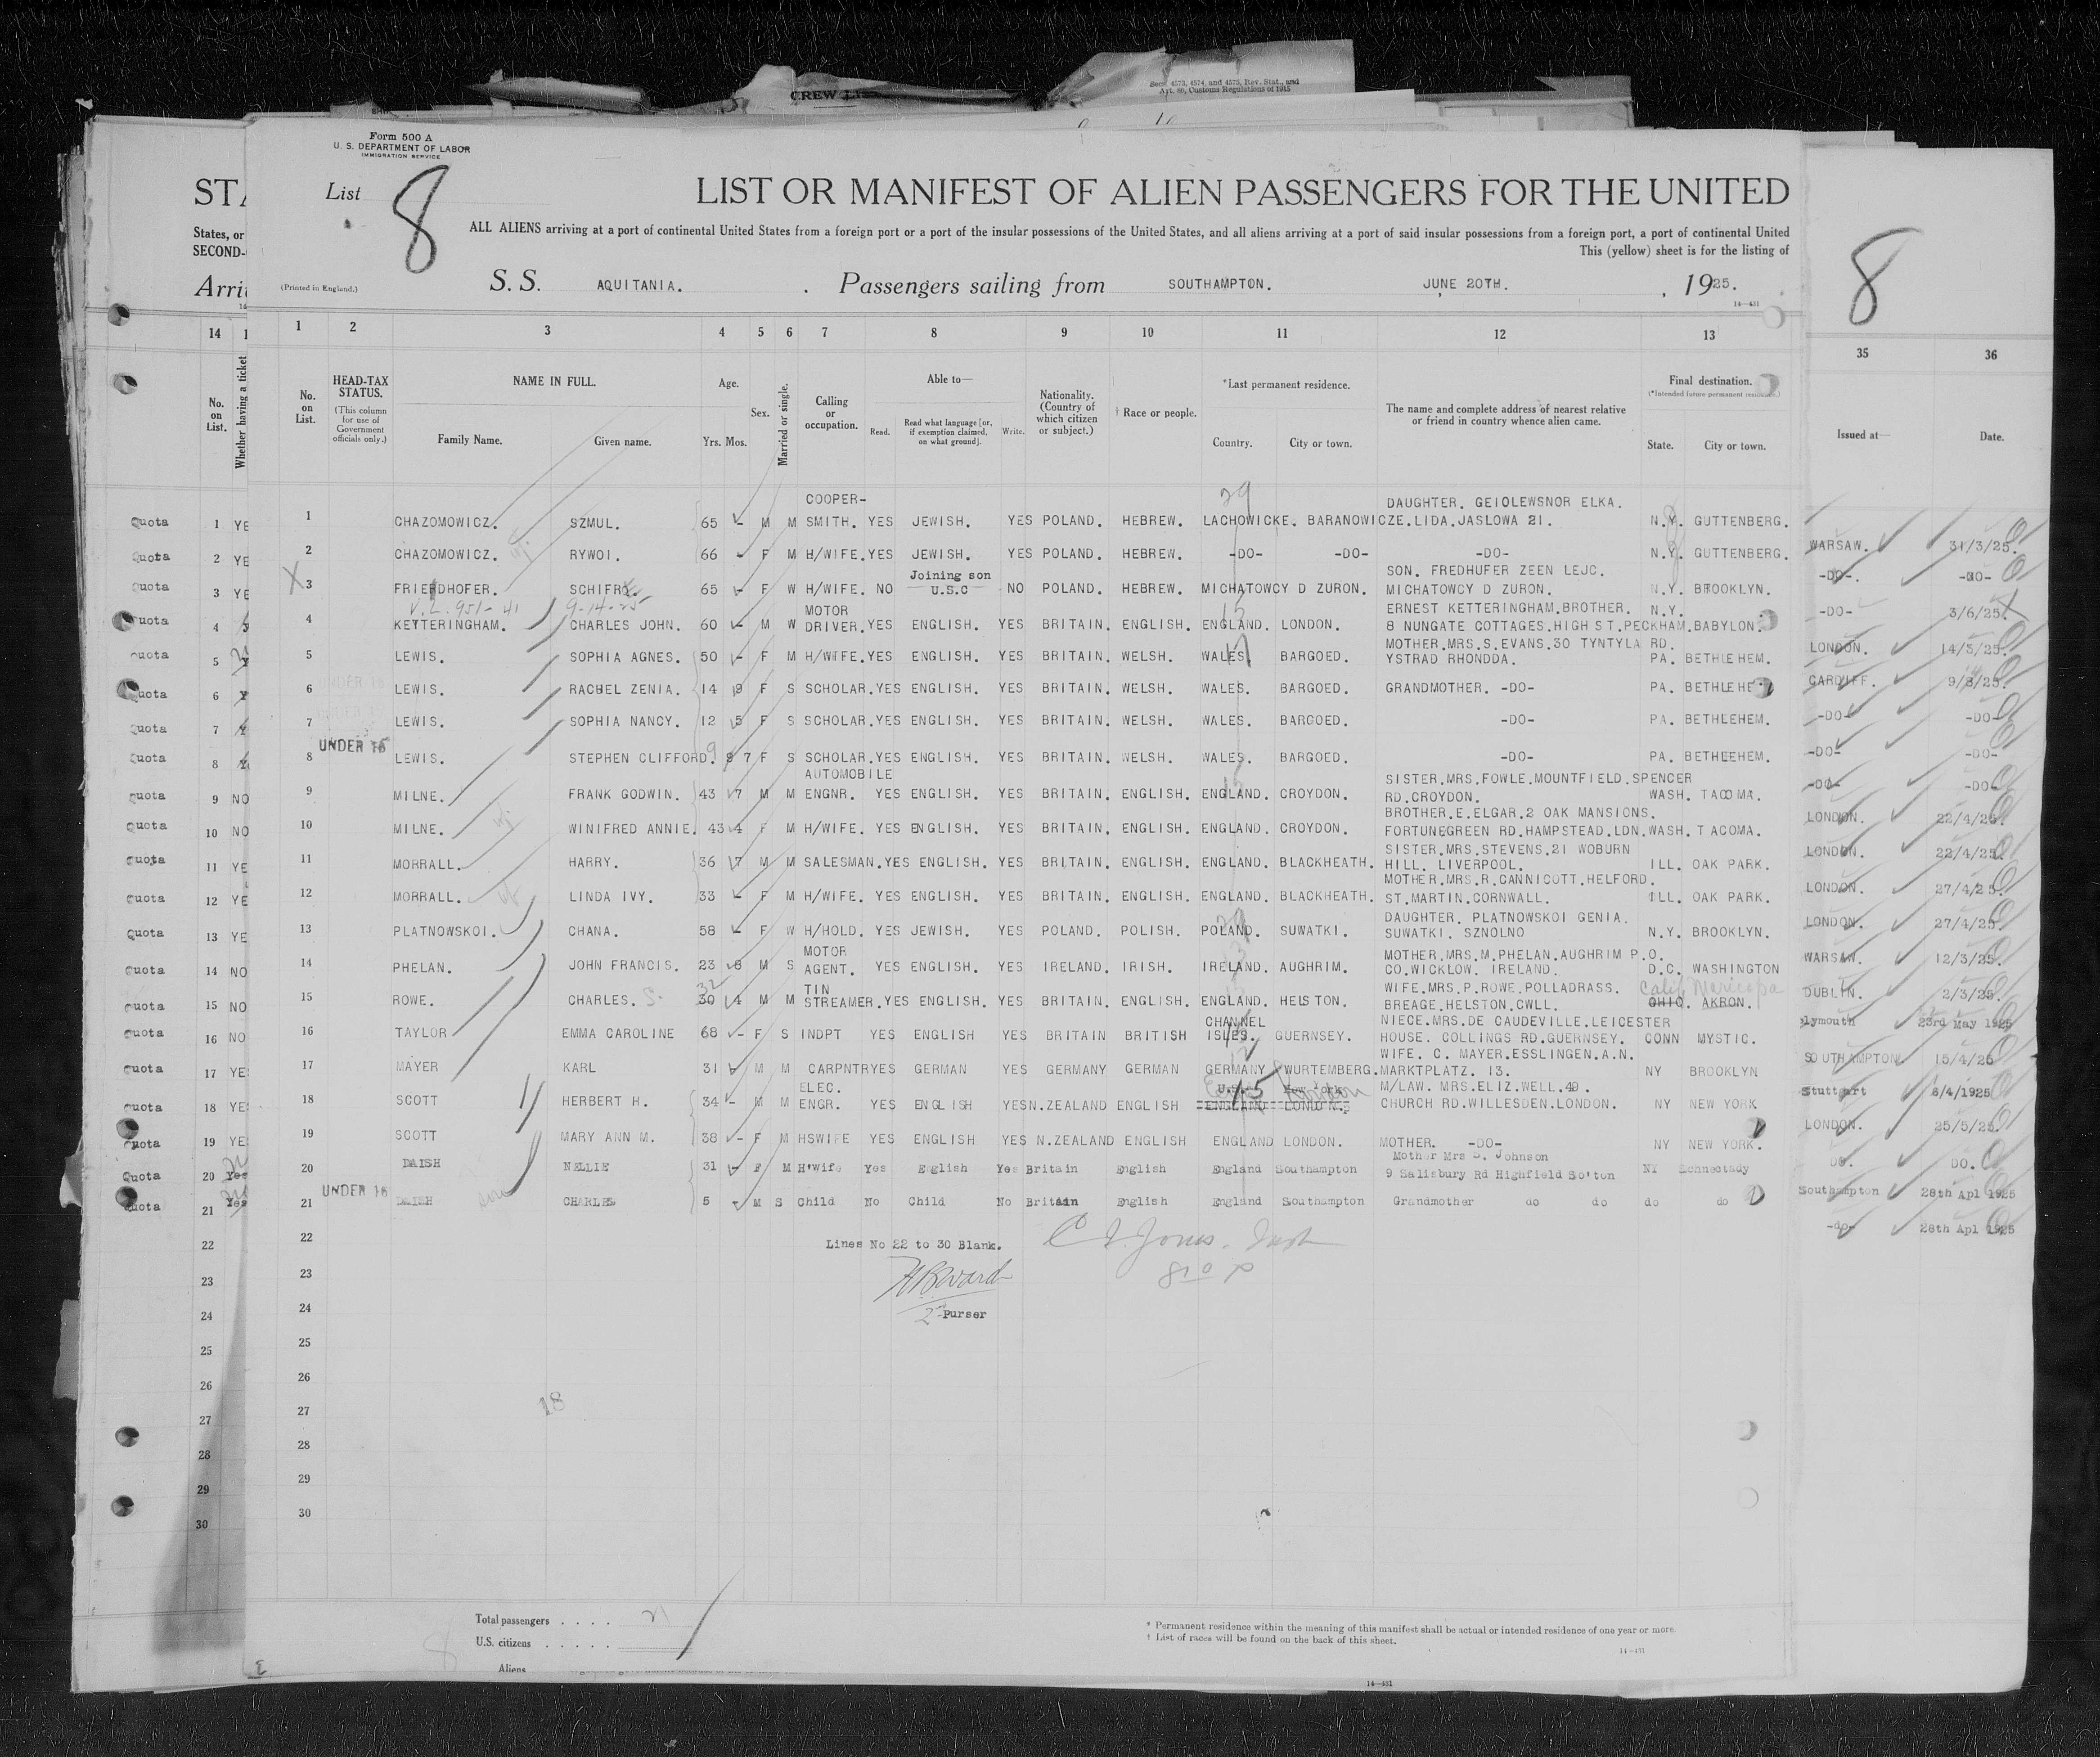 CREW LI
Secs. 4573, 4574, and 4575, Rev. Stat., and
Art. 60, Customs Regulations of 1915
Form 500 A
U. S. DEPARTMENT OF LABOR
IMMIGRATION SERVICE
STA
List 8 LIST OR MANIFEST OF ALIEN PASSENGERS FOR THE UNITED
States, or
SECOND-
ALL ALIENS arriving at a port of continental United States from a foreign port or a port of the insular possessions of the United States, and all aliens arriving at a port of said insular possessions from a foreign port, a port of continental United
This (yellow) sheet is for the listing of
8
Arri
(Printed in England.) S. S. AQUITANIA. Passengers sailing from SOUTHAMPTON. JUNE 20TH. , 1925.
14—431
14 1 2 3 4 5 6 7 8 9 10 11 12 13 35 36
No. on List. Whether having a ticket
No. on List. HEAD-TAX STATUS. (This column for use of Government officials only.) NAME IN FULL. Family Name. Given name. Age. Yrs. Mos. Sex. Married or single. Calling or occupation. Able to— Read. Read what language [or, if exemption claimed, on what ground]. Write. Nationality. (Country of which citizen or subject.) † Race or people. *Last permanent residence. Country. City or town. The name and complete address of nearest relative or friend in country whence alien came. Final destination. (*Intended future permanent residence.) State. City or town. Issued at— Date.
COOPER- 29 DAUGHTER. GEIOLEWSNOR ELKA.
Quota 1 YE 1 CHAZOMOWICZ. SZMUL. 65 - M M SMITH. YES JEWISH. YES POLAND. HEBREW. LACHOWICKE. BARANOWICZE.LIDA.JASLOWA 21. N.Y. GUTTENBERG. WARSAW. 31/3/25.
Quota 2 YE 2 CHAZOMOWICZ. RYWOI. 66 - F M H/WIFE. YES JEWISH. YES POLAND. HEBREW. -DO- -DO- -DO- N.Y. GUTTENBERG. -DO-. -DO-
Joining son SON. FREDHUFER ZEEN LEJC.
Quota 3 YE X 3 FRIEDHOFER. 65 - F W H/WIFE. NO U.S.C NO POLAND. HEBREW. MICHATOWCY D ZURON. MICHATOWCY D ZURON. N.Y. BROOKLYN. -DO- 3/6/25.
V.L. 951-41 9-14-25 MOTOR 15 ERNEST KETTERINGHAM.BROTHER. N.Y.
Quota 4 4 KETTERINGHAM. CHARLES JOHN. 60 - M W DRIVER. YES ENGLISH. YES BRITAIN. ENGLISH. ENGLAND. LONDON. 8 NUNGATE COTTAGES.HIGH ST.PECKHAM.BABYLON. LONDON. 14/3/25.
MOTHER.MRS.S.EVANS.30 TYNTYLA RD.
Quota 5 5 LEWIS. SOPHIA AGNES. 50 - F M H/WIFE. YES ENGLISH. YES BRITAIN. WELSH. WALES. BARGOED. YSTRAD RHONDDA. PA. BETHLEHEM. CARDIFF.
Quota 6 6 LEWIS. RACHEL ZENIA. 14 9 F S SCHOLAR. YES ENGLISH. YES BRITAIN. WELSH. WALES. BARGOED. GRANDMOTHER. -DO- PA. BETHLEHE -DO- -DO-
Quota 7 7 LEWIS. SOPHIA NANCY. 12 5 F S SCHOLAR. YES ENGLISH. YES BRITAIN. WELSH. WALES. BARGOED. -DO- PA. BETHLEHEM. -DO- -DO-
UNDER 16
Quota 8 8 LEWIS. STEPHEN CLIFFORD. 9 7 F S SCHOLAR. YES ENGLISH. YES BRITAIN. WELSH. WALES. BARGOED. -DO- PA. BETHLEHEM. -DO- -DO-
AUTOMOBILE SISTER.MRS.FOWLE.MOUNTFIELD.SPENCER
Quota 9 NO 9 MILNE. FRANK GODWIN. 43 7 M M ENGNR. YES ENGLISH. YES BRITAIN. ENGLISH. ENGLAND. CROYDON. RD.CROYDON. WASH. TACOMA. LONDON. 22/4/25.
BROTHER.E.ELGAR.2 OAK MANSIONS.
Quota 10 NO 10 MILNE. WINIFRED ANNIE. 43 4 F M H/WIFE. YES ENGLISH. YES BRITAIN. ENGLISH. ENGLAND. CROYDON. FORTUNEGREEN RD.HAMPSTEAD.LDN. WASH. TACOMA. LONDON. 22/4/25.
SISTER.MRS.STEVENS.21 WOBURN
Quota 11 YE 11 MORRALL. HARRY. 36 7 M M SALESMAN. YES ENGLISH. YES BRITAIN. ENGLISH. ENGLAND. BLACKHEATH. HILL. LIVERPOOL. ILL. OAK PARK. LONDON. 27/4/25.
MOTHER.MRS.R.CANNICOTT.HELFORD.
Quota 12 YE 12 MORRALL. LINDA IVY. 33 - F M H/WIFE. YES ENGLISH. YES BRITAIN. ENGLISH. ENGLAND. BLACKHEATH. ST.MARTIN.CORNWALL. ILL. OAK PARK. LONDON. 27/4/25.
DAUGHTER. PLATNOWSKOI GENIA.
Quota 13 YE 13 PLATNOWSKOI. CHANA. 58 - F W H/HOLD. YES JEWISH. YES POLAND. POLISH. POLAND. SUWATKI. SUWATKI. SZNOLNO N.Y. BROOKLYN. WARSAW. 12/3/25.
MOTOR MOTHER.MRS.M.PHELAN.AUGHRIM P.O.
Quota 14 NO 14 PHELAN. JOHN FRANCIS. 23 8 M S AGENT. YES ENGLISH. YES IRELAND. IRISH. IRELAND. AUGHRIM. CO.WICKLOW. IRELAND. D.C. WASHINGTON DUBLIN. 2/3/25.
32 TIN WIFE.MRS.P.ROWE.POLLADRASS. Calif Maricopa
Quota 15 NO 15 ROWE. CHARLES. S. 30 4 M M STREAMER. YES ENGLISH. YES BRITAIN. ENGLISH. ENGLAND. HELSTON. BREAGE.HELSTON.CWLL. OHIO. AKRON. plymouth 23rd May 1925
CHANNEL NIECE.MRS.DE CAUDEVILLE.LEICESTER
Quota 16 NO 16 TAYLOR EMMA CAROLINE 68 - F S INDPT YES ENGLISH YES BRITAIN BRITISH ISLES. GUERNSEY. HOUSE. COLLINGS RD.GUERNSEY. CONN MYSTIC. SOUTHAMPTON 15/4/25
WIFE. C. MAYER.ESSLINGEN.A.N.
Quota 17 YES 17 MAYER KARL 31 M M CARPNTR YES GERMAN YES GERMANY GERMAN GERMANY WURTEMBERG. MARKTPLATZ. 13. NY BROOKLYN Stuttgart 6/4/1925
ELEC. U.S. New York 15 London M/LAW. MRS.ELIZ.WELL.49.
Quota 18 YES 18 SCOTT HERBERT H. 34 - M M ENGR. YES ENGLISH YES N.ZEALAND ENGLISH ENGLAND LONDON. CHURCH RD.WILLESDEN.LONDON. NY NEW YORK LONDON. 25/5/25.
Quota 19 YES 19 SCOTT MARY ANN M. 38 - F M HSWIFE YES ENGLISH YES N.ZEALAND ENGLISH ENGLAND LONDON. MOTHER. -DO- NY NEW YORK. DO. DO.
Mother Mrs S. Johnson
Quota 20 Yes 20 DAISH NELLIE 31 - F M H'wife Yes English Yes Britain English England Southampton 9 Salisbury Rd Highfield So'ton NY Schnectady Southampton 28th Apl 1925
UNDER 16
Quota 21 Yes 21 DAISH son CHARLES 5 - M S Child No Child No Britain English England Southampton Grandmother do do do do -do- 28th Apl 1925
22 22 Lines No 22 to 30 Blank. C J. Jones.
23 23 H B Ward
24 24 2nd Purser
25 25
26 26
27 27 18
28 28
29 29
30 30
Total passengers . . . . 21
U.S. citizens . . . . .
Aliens
* Permanent residence within the meaning of this manifest shall be actual or intended residence of one year or more.
† List of races will be found on the back of this sheet.
14—431
14—431